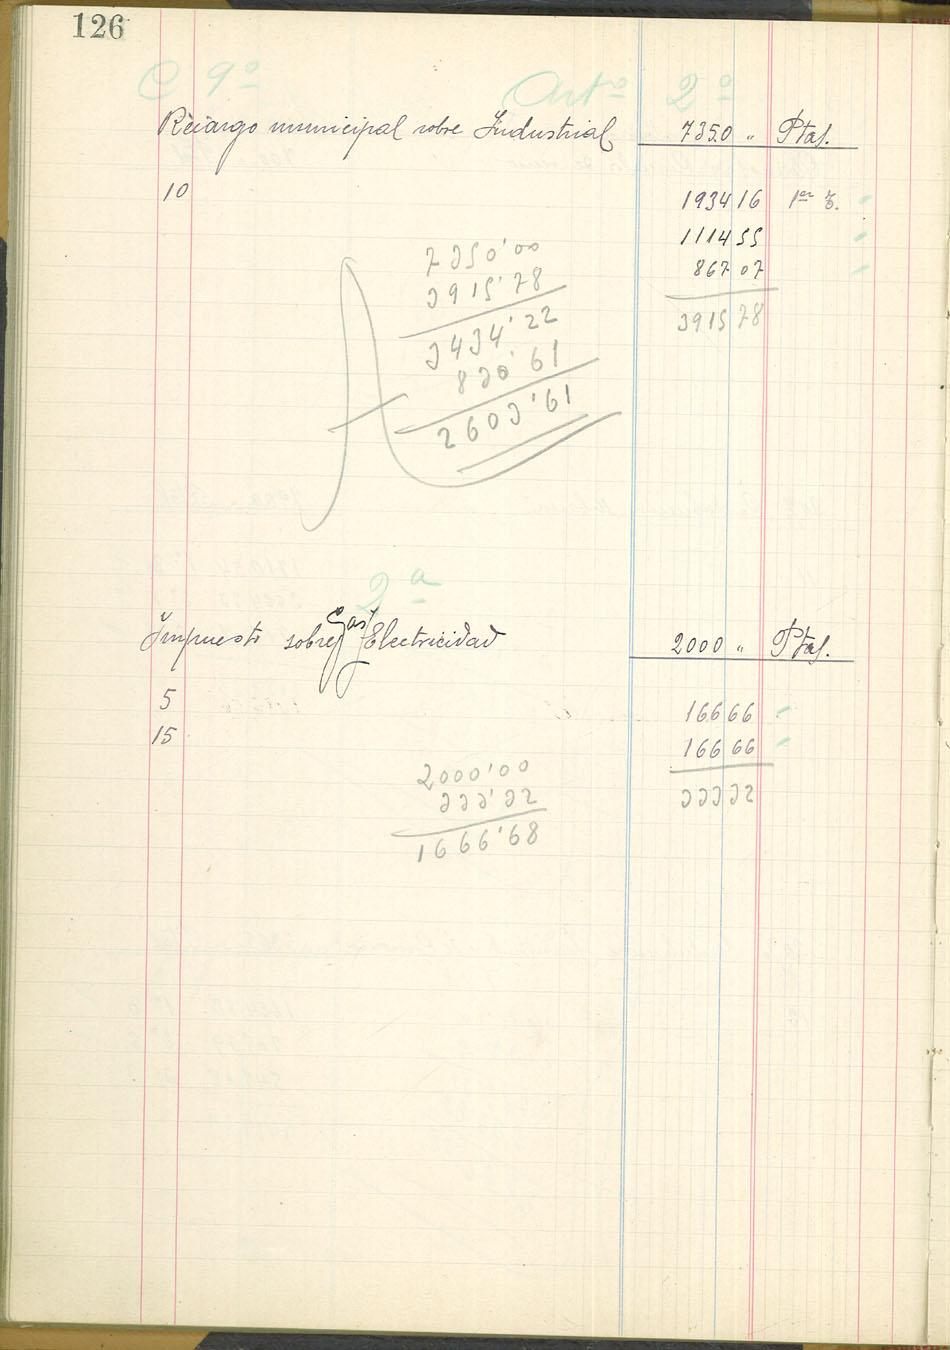 126
C 9º Artº 2º
Recargo municipal sobre Industrial 7350 " Ptas.
10 1934 16 1er T.
1114 55
867 07
3915 78
7350'00
3915'78
3434'22
830'61
2603'61
2ª
Impuesto sobre Gas y Electricidad 2000 " Ptas.
5 166 66
15 166 66
333 32
2000'00
333'32
1666'68